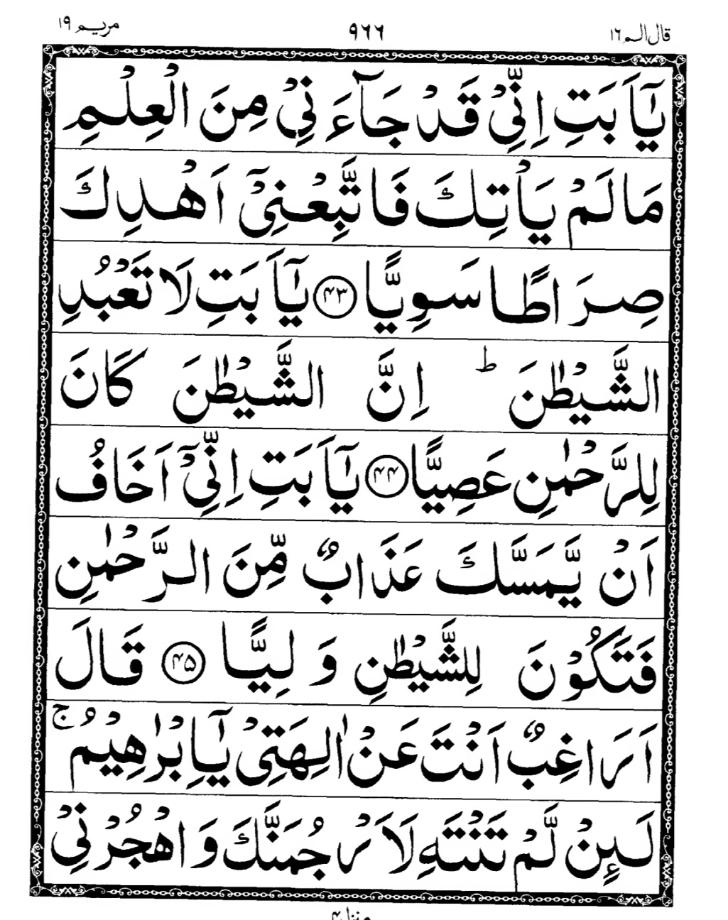 قال الم ١٦ ٩٦٦ مريم ١٩
يٰٓاَبَتِ اِنِّىْ قَدْ جَآءَنِىْ مِنَ الْعِلْمِ
مَا لَمْ يَاْتِكَ فَاتَّبِعْنِىْٓ اَهْدِكَ
صِرَاطًا سَوِيًّا ﴿۴۳﴾ يٰٓاَبَتِ لَا تَعْبُدِ
الشَّيْطٰنَ ؕ اِنَّ الشَّيْطٰنَ كَانَ
لِلرَّحْمٰنِ عَصِيًّا ﴿۴۴﴾ يٰٓاَبَتِ اِنِّىْٓ اَخَافُ
اَنْ يَّمَسَّكَ عَذَابٌ مِّنَ الرَّحْمٰنِ
فَتَكُوْنَ لِلشَّيْطٰنِ وَلِيًّا ﴿۴۵﴾ قَالَ
اَرَاغِبٌ اَنْتَ عَنْ اٰلِهَتِىْ يٰٓاِبْرٰهِيْمُ ۚ
لَئِنْ لَّمْ تَنْتَهِ لَاَرْجُمَنَّكَ وَاهْجُرْنِىْ
منزل ۴